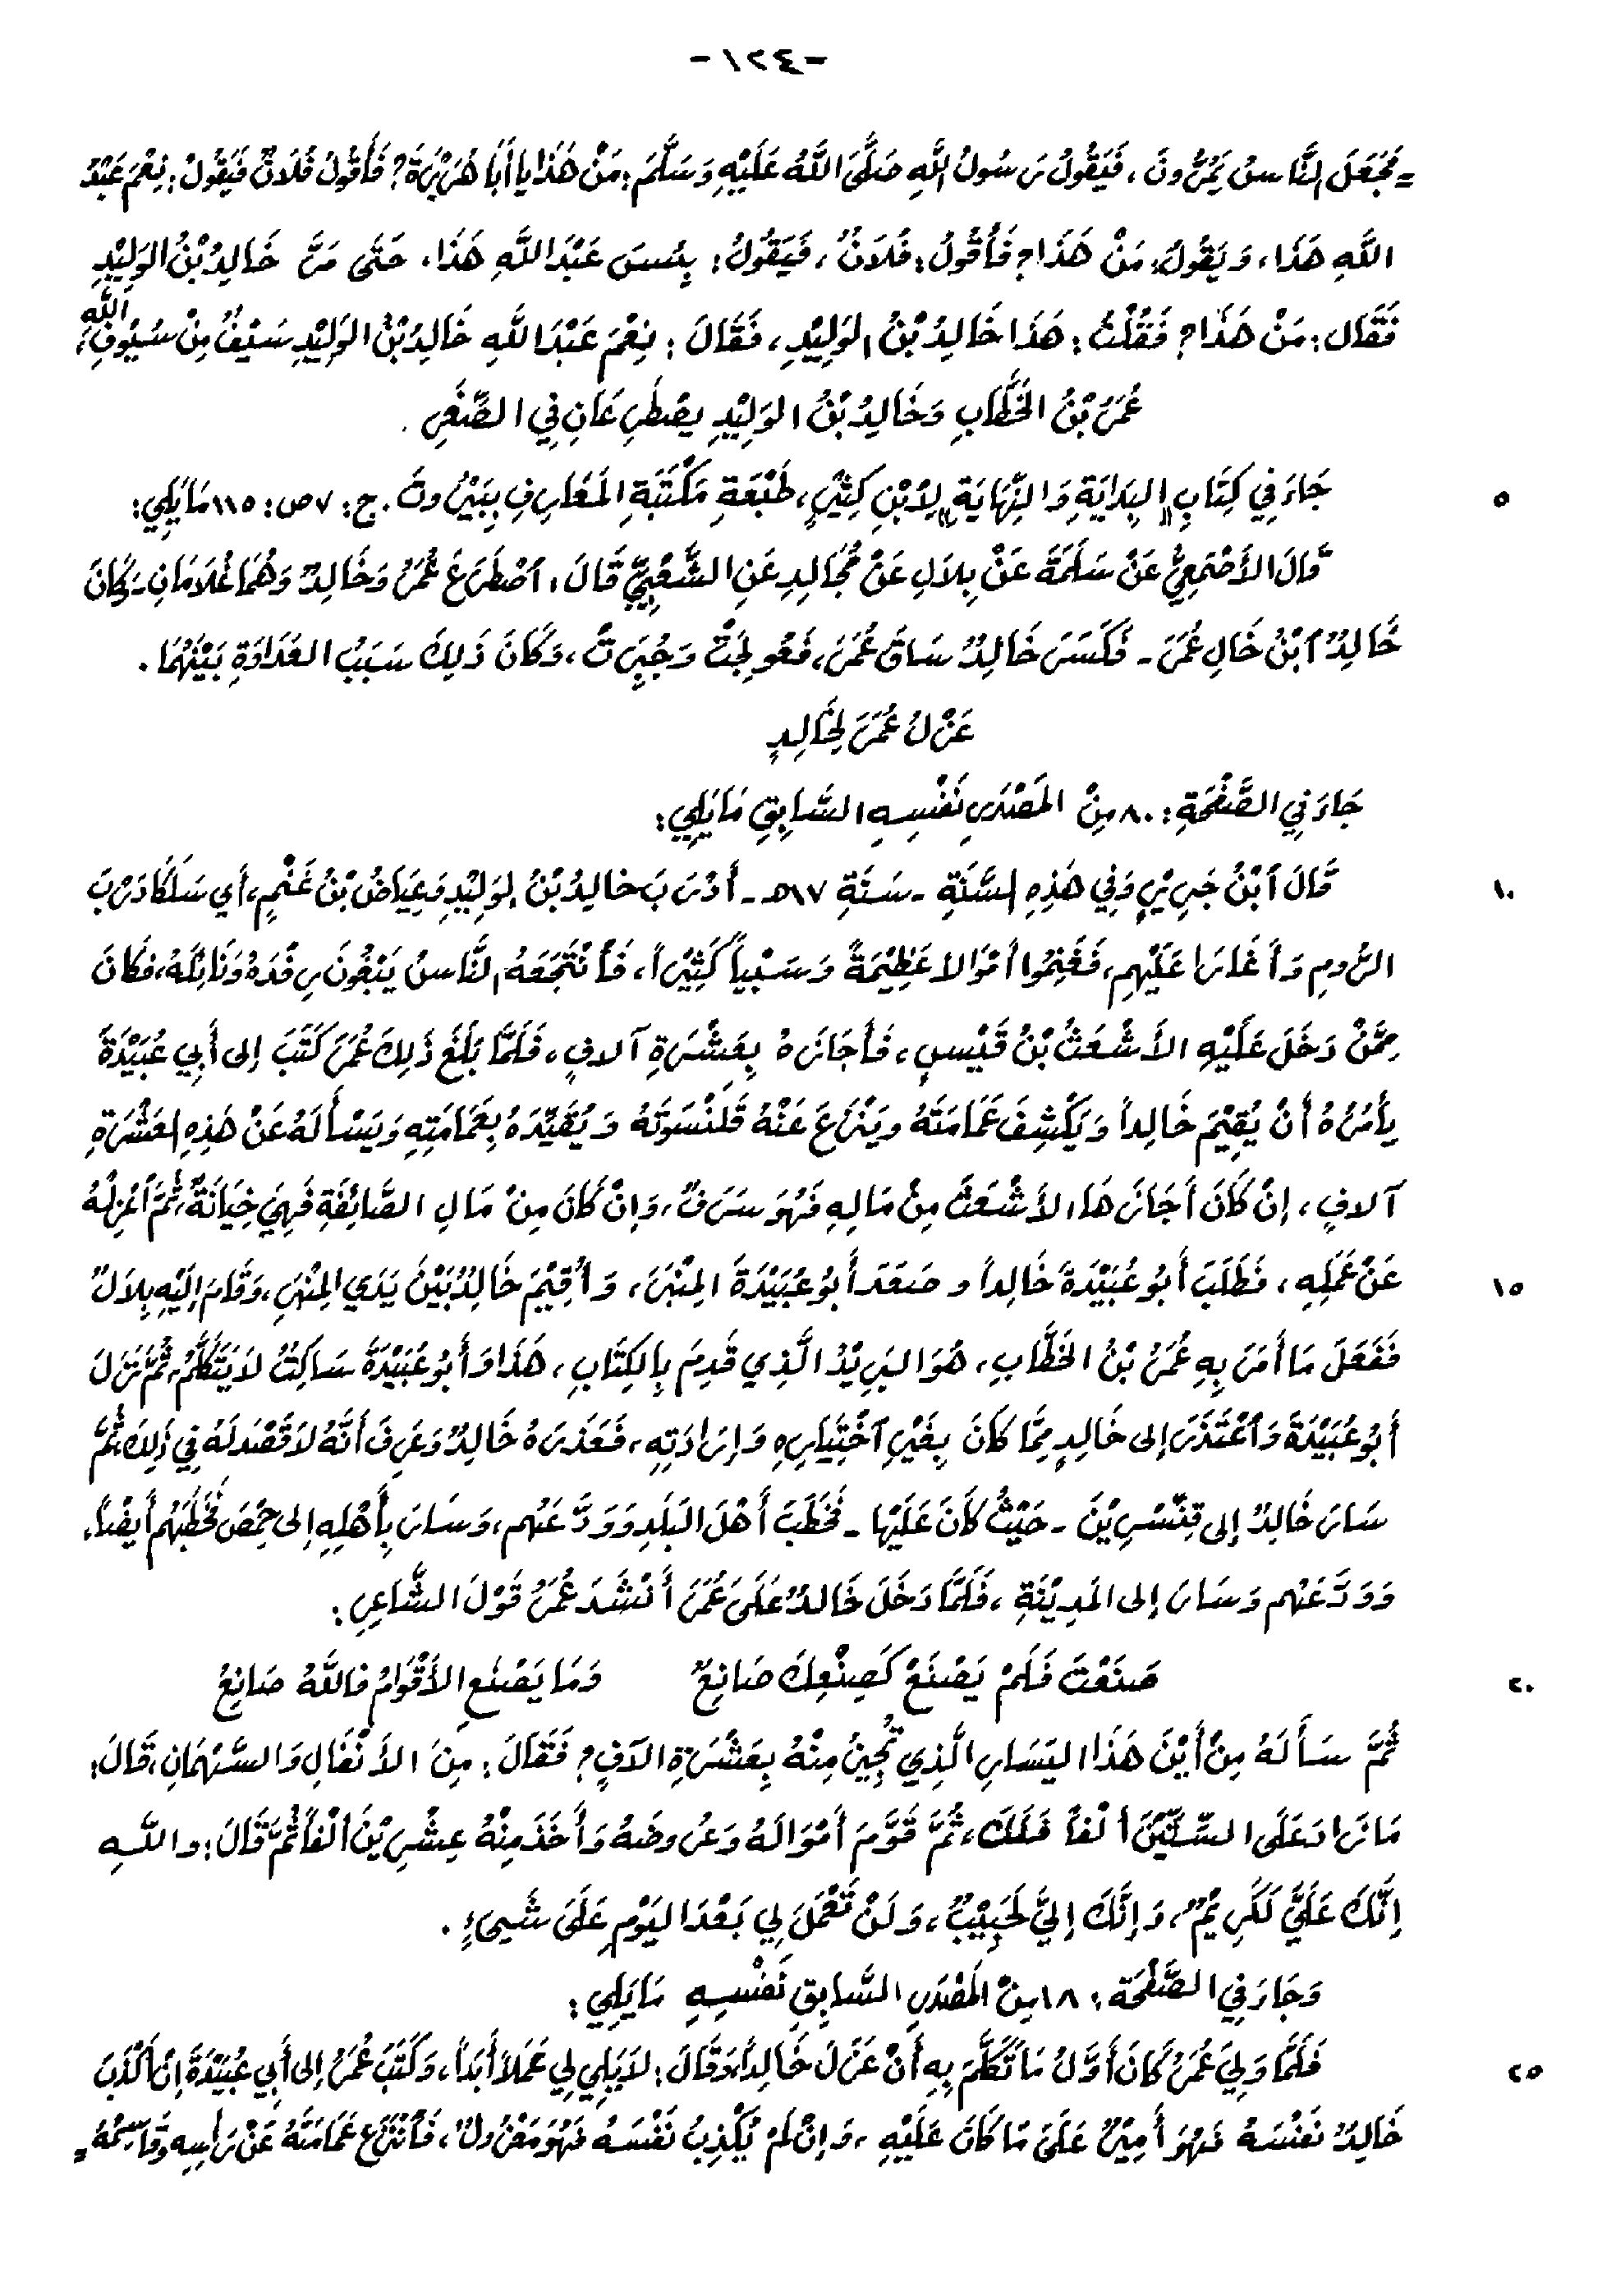 -١٢٤-
= فَجَعَلَ النَّاسُ يَمُرُّونَ، فَيَقُولُ رَسُولُ اللهِ صَلَّى اللَّهُ عَلَيْهِ وَسَلَّمَ: مَنْ هَذَا يا أَبَا هُرَيْرَةَ؟ فَأَقُولُ فُلَانٌ فَيَقُولُ: نِعْمَ عَبْدُ
اللَّهِ هَذَا، وَيَقُولُ: مَنْ هَذَا؟ فَأَقُولُ: فُلَانٌ، فَيَقُولُ: بِئْسَ عَبْدُ اللَّهِ هَذَا، حَتَّى مَرَّ خَالِدُ بْنُ الوَلِيْدِ
فَقَالَ: مَنْ هَذَا؟ فَقُلْتُ: هَذَا خَالِدُ بْنُ الوَلِيْدِ، فَقَالَ: نِعْمَ عَبْدُ اللهِ خَالِدُ بْنُ الوَلِيْدِ سَيْفٌ مِنْ سُيُوفِ اللَّهِ،
عُمَرُ بْنُ الخَطَّابِ وَخَالِدُ بْنُ الوَلِيْدِ يصْطَرِعَانِ فِي الصِّغَرِ.
٥ جَاءَ فِي كِتَابِ «البِدَايَةِ وَالنِّهَايَةِ» لِابْنِ كَثِيْرٍ، طَبْعَةِ مَكْتَبَةِ المَعَارِفِ بِبَيْرُوتَ. ج: ٧ ص: ١١٥ مَا يَلِي:
قَالَ الأَصْمَعِيُّ عَنْ سَلَمَةَ عَنْ بِلَالٍ عَنْ مُجَالِدٍ عَنِ الشَّعْبِيِّ قَالَ: اصْطَرَعَ عُمَرُ وَخَالِدٌ وَهُمَا غُلَامَانِ - وَكَانَ
خَالِدٌ ابْنُ خَالِ عُمَرَ - فَكَسَرَ خَالِدٌ سَاقَ عُمَرَ، فَعُولِجَتْ وَجُبِرَتْ، وَكَانَ ذَلِكَ سَبَبُ العَدَاوَةِ بَيْنَهُمَا.
عَزْلُ عُمَرَ لِخَالِدٍ
جَاءَ فِي الصَّفْحَةِ: ٨٠ مِنْ المَصْدَرِ نَفْسِهِ السَّابِقِ مَا يَلِي:
١٠ قَالَ ابْنُ جَرِيْرٍ وَفِي هَذِهِ السَّنَةِ - سَنَةِ ١٧هـ - أَدْرَبَ خالِدُ بْنُ الوَلِيْدِ وَعِيَاضُ بْنُ غَنْمٍ، أَي سَلَكَا دَرْبَ
الرُّومِ وَأَغَارَا عَلَيْهِم، فَغَنِمُوا أمْوَالاً عَظِيْمَةً وَسَبْياً كَثِيْراً، فَانْتَجَعَهُ النَّاسُ يَبْغُونَ رِفْدَهُ وَنَائِلَهُ، فكَانَ
مِمَّنْ دَخَلَ عَلَيْهِ الأَشْعَثُ بْنُ قَيْسٍ، فَأَجَازَهُ بِعَشَرَةِ آلافٍ، فَلَمَّا بَلَغَ ذَلِكَ عُمَرَ كَتَبَ إلى أَبِي عُبَيْدَةَ
يأمُرُهُ أَنْ يُقِيْمَ خَالِداً وَيَكْشِفَ عَمَامَتَهُ ويَنْزِعَ عَنْهُ قَلَنْسَوَتَهُ وَيُقَيِّدَهُ بِعَمَامَتِهِ وَيَسْأَلَهُ عَنْ هَذِهِ العَشَرَةِ
آلافٍ، إنْ كَانَ أَجَازَهَا الأَشْعَثَ مِنْ مَالِهِ فَهُوَ سَرَفٌ، وَإنْ كَانَ مِنْ مَالِ الصَّائِفَةِ فَهِيَ خِيَانَةٌ، ثُمَّ اعْزِلْهُ
١٥ عَنْ عَمَلِهِ، فَطَلَبَ أَبُو عُبَيْدَةَ خَالِداً و صَعَدَ أَبُو عُبَيْدَةَ المِنْبَرَ، وَأُقِيْمَ خَالِدٌ بَيْنَ يَدَي المِنْبَرِ، وَقَامَ إلَيْهِ بِلَالٌ
فَفَعَلَ مَا أَمَرَ بِهِ عُمَرُ بْنُ الخَطَّابِ، هُوَ البَرِيْدُ الَّذِي قَدِمَ بِالكِتَابِ، هَذَا وَأَبُو عُبَيْدَةَ سَاكِتٌ لَا يَتَكَلَّمُ، ثُمَّ نَزَلَ
أَبُو عُبَيْدَةَ وَاعْتَذَرَ إلى خَالِدٍ مِمَّا كَانَ بِغَيْرِ اخْتِيَارِهِ وَإرَادَتِهِ، فَعَذَرَهُ خَالِدٌ وَعَرِفَ أَنَّهُ لَا قَصْدَ لَهُ فِي ذَلِكَ، ثُمَّ
سَارَ خَالِدٌ إلى قِنَّسْرِيْنَ - حَيْثُ كَانَ عَلَيْهَا - فَخَطَبَ أَهْلَ البَلَدِ وَوَدَّعَهُم، وَسَارَ بِأَهْلِهِ إلى حِمْصَ فَخَطَبَهُم أَيضاً،
وَوَدَّعَهُم وَسَارَ إلى المَدِيْنَةِ، فَلَمَّا دَخَلَ خَالدٌ عَلَى عُمَرَ أَنْشَدَ عُمَرُ قَوْلَ الشَّاعِرِ:
٢٠ صَنَعْتَ فَلَمْ يَصْنَعْ كَصِنْعِكَ صَانِعٌ وَمَا يَصْنَعِ الأَقْوَامُ فاللَّهُ صَانِعُ
ثُمَّ سَأَلَهُ مِنْ أَيْنَ هَذَا اليَسَارِ الَّذِي تُجِيزُ مِنْهُ بِعَشَرَةِ الآفٍ؟ فَقَالَ: مِنَ الأَنْفَالِ وَالسِّهْمَانِ، قَالَ:
مَا زَادَ عَلَى السِّتِّيْنَ أَلْفاً فَلَكَ، ثُمَّ قَوَّمَ أَمْوَالَهُ وَعُرُوضَهُ وَأَخَذَ مِنْهُ عِشْرِيْنَ أَلْفاً ثُمَّ قَالَ: واللَّهِ
إنَّكَ عَلَيَّ لَكَرِيْمٌ، وَإنَّكَ إلَيَّ لَحَبِيْبٌ، وَلَنْ تَعْمَلَ لِي بَعْدَ اليَوْمِ عَلَى شَيءٍ.
وَجَاءَ فِي الصَّفْحَة: ١٨ مِنْ المَصْدَرِ السَّابِقِ نَفْسِهِ مَا يَلِي:
٢٥ فَلَمَّا وَلِيَ عُمَرُ كَانَ أَوَّلُ مَا تَكَلَّمَ بِهِ أَنْ عَزَلَ خَالِداً، وَقَالَ: لَا يَلِي لِي عَمَلاً أَبَداً، وَكَتَبَ عُمَرُ إلى أَبِي عُبَيْدَةَ إنْ أَكْذَبَ
خَالِدٌ نَفْسَهُ فَهُوَ أَمِيْرٌ عَلَى مَا كَانَ عَلَيْهِ، وَإنْ لَمْ يُكْذِبُ نَفْسَهُ فَهُوَ مَعْزُولٌ، فَانْتَزِع عَمَامَتَهُ عَنْ رَأسِهِ وَقَاسِمْهُ =